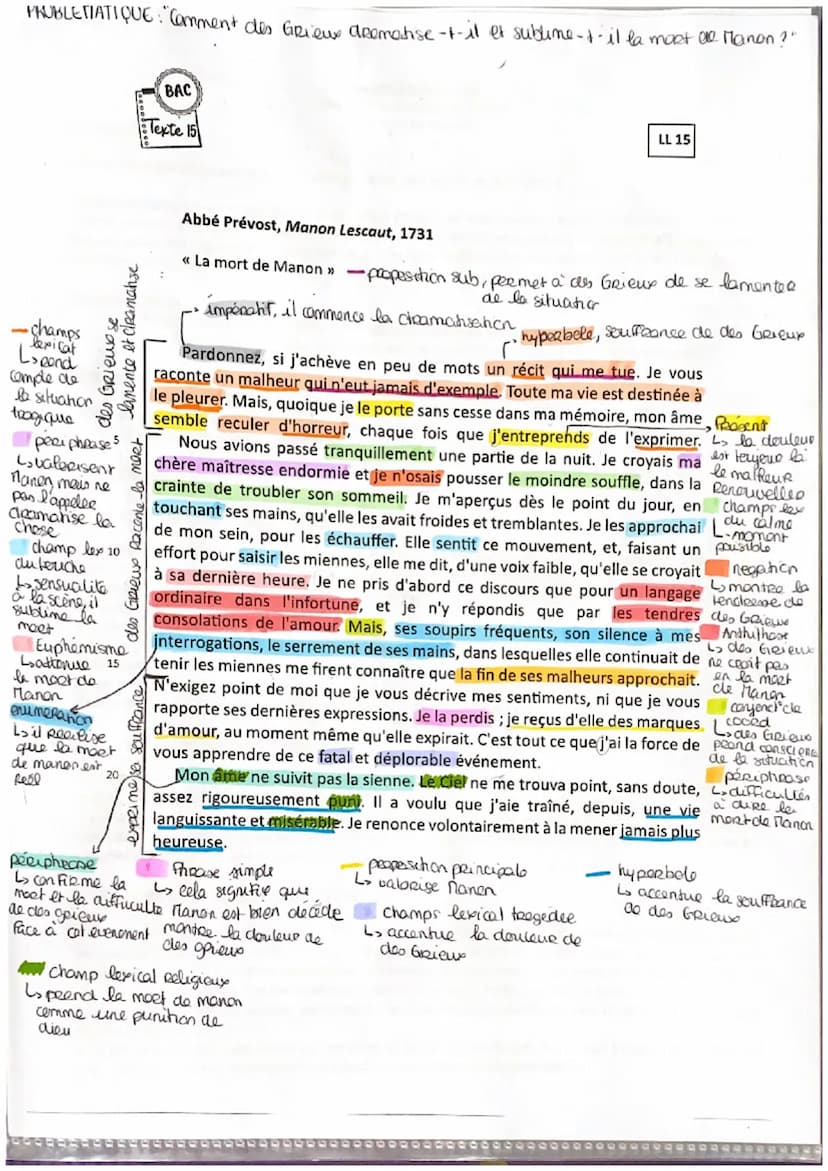 PROBLEMATIQUE : "Comment des Grieux dramatise-t-il et sublime-t-il la mort de Manon ?"
BAC
Texte 15
LL 15
Abbé Prévost, Manon Lescaut, 1731
« La mort de Manon »
proposition sub, permet à des Grieux de se lamenter
de la situation
impératif, il commence la dramatisation
hyperbole, souffrance de des Grieux
des Grieux se
lamente et dramatise
des Grieux raconte la mort
exprime sa souffrance
Pardonnez, si j'achève en peu de mots un récit qui me tue. Je vous
raconte un malheur qui n'eut jamais d'exemple. Toute ma vie est destinée à
le pleurer. Mais, quoique je le porte sans cesse dans ma mémoire, mon âme
semble reculer d'horreur, chaque fois que j'entreprends de l'exprimer.
Nous avions passé tranquillement une partie de la nuit. Je croyais ma
chère maîtresse endormie et je n'osais pousser le moindre souffle, dans la
crainte de troubler son sommeil. Je m'aperçus dès le point du jour, en
touchant ses mains, qu'elle les avait froides et tremblantes. Je les approchai
de mon sein, pour les échauffer. Elle sentit ce mouvement, et, faisant un
effort pour saisir les miennes, elle me dit, d'une voix faible, qu'elle se croyait
à sa dernière heure. Je ne pris d'abord ce discours que pour un langage
ordinaire dans l'infortune, et je n'y répondis que par les tendres
consolations de l'amour. Mais, ses soupirs fréquents, son silence à mes
interrogations, le serrement de ses mains, dans lesquelles elle continuait de
tenir les miennes me firent connaître que la fin de ses malheurs approchait.
N'exigez point de moi que je vous décrive mes sentiments, ni que je vous
rapporte ses dernières expressions. Je la perdis ; je reçus d'elle des marques
d'amour, au moment même qu'elle expirait. C'est tout ce que j'ai la force de
vous apprendre de ce fatal et déplorable événement.
Mon âme ne suivit pas la sienne. Le Ciel ne me trouva point, sans doute,
assez rigoureusement puni. Il a voulu que j'aie traîné, depuis, une vie
languissante et misérable. Je renonce volontairement à la mener jamais plus
heureuse.
5
10
15
20
champs
lexical
↳ rend
compte de
la situation
tragique
périphrase
↳ valorisent
Manon, mais ne
pas l'appeler
dramatise la
chose
champ lex
du touché
↳ sensualité
à la scène, il
sublime la
mort
Euphémisme
↳ atténue
la mort de
Manon
énumération
↳ il précise
que la mort
de manon est
réel
Présent
↳ la douleur
est toujours là
le malheur
Renouvellé
champs lex
du calme
↳ moment
paisible
negation
↳ montre la
tendresse de
des Grieux
Antithèse
↳ des Grieux
ne croit pas
en la mort
de Manon
conjonct° de
coord
↳ des Grieux
prend conscience
de la situation
périphrase
↳ difficultés
à dire la
mort de Manon
périphrase
↳ confirme la
mort et la difficulté
de des grieux
face à cet evenement
Phrase simple
↳ cela signifie que
Manon est bien décédé
montre la douleur de
des grieux
proposition principale
↳ valorise Manon
champs lexical tragédie
↳ accentue la douleur de
des Grieux
hyperbole
↳ accentue la souffrance
de des Grieux
champ lexical religieux
↳ prend la mort de manon
comme une punition de
dieu